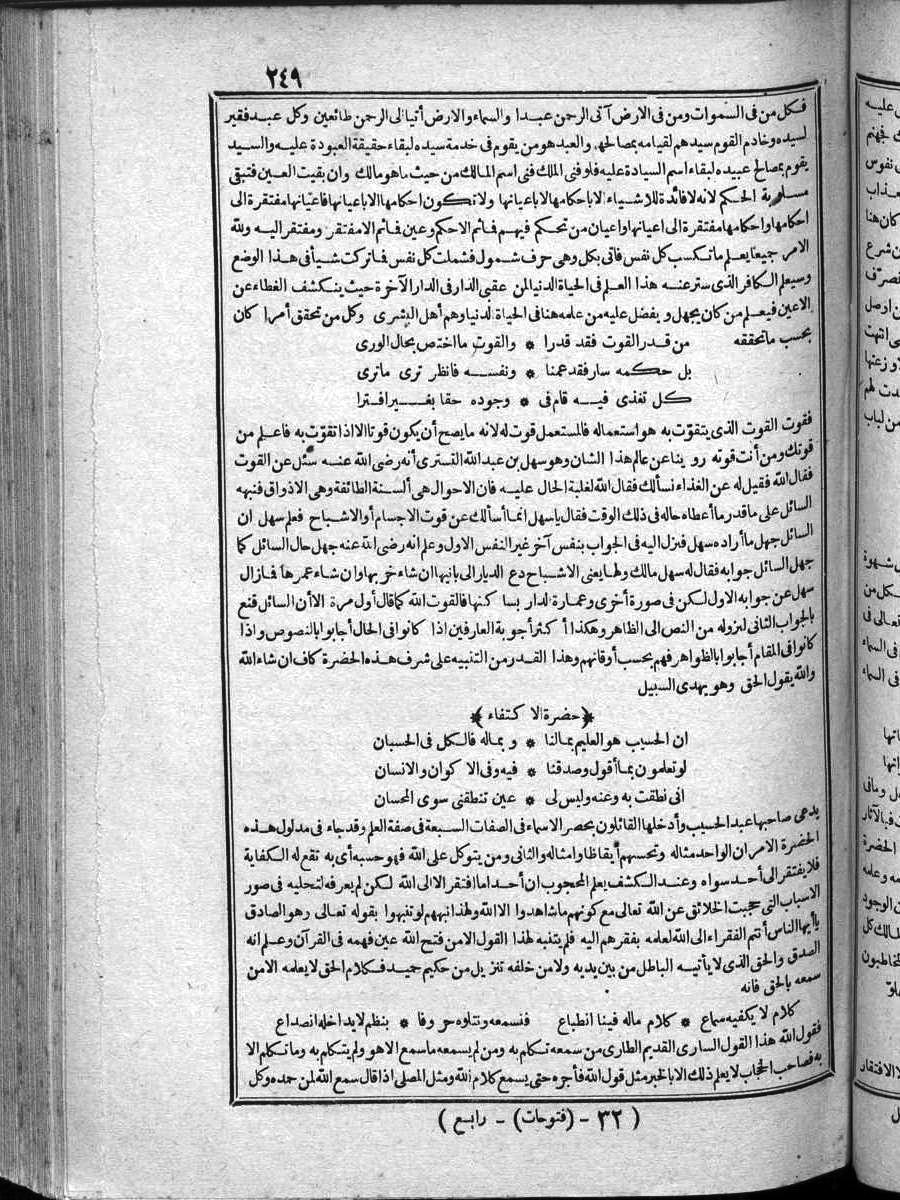 ٢٤٩
فكل من فى السموات ومن فى الارض آتى الرحمن عبدا والسماء والارض أتيا الى الرحمن طائعين وكل عبد فقير
لسيده وخادم القوم سيدهم لقيامه بمصالحهم والعبد هو من يقوم فى خدمة سيده لبقاء حقيقة العبودة عليه والسيد
يقوم بمصالح عبيده لبقاء اسم السيادة عليه فلو فنى الملك فنى اسم المالك من حيث ماهو مالك وان بقيت العين فتبقى
مسلوبة الحكم لانه لا فائدة للاشياء الا باحكامها لا باعيانها ولا تكون احكامها الا باعيانها فاعيانها مفتقرة الى
احكامها واحكامها مفتقرة الى اعيانها واعيان من تحكم فيهم فاثم الا حكم وعين فاثم الا مفتقر ومفتقر اليه ولله
الامر جميعا يعلم ما تكسب كل نفس فاتى بكل وهى حرف شمول فشملت كل نفس فاتركت شيأ فى هذا الوضع
وسيعلم الكافر الذى ستر عنه هذا العلم فى الحياة الدنيا لمن عقبى الدار فى الدار الآخرة حيث ينكشف الغطاء عن
الاعين فيعلم من كان يجهل و يفضل عليه من علمه هنا فى الحياة الدنيا وهم أهل البشرى وكل من تحقق أمرا كان
بحسب ما تحققه
من قدر القوت فقد قدرا * والقوت ما اختص بحال الورى
بل حكمه سار فقد عمنا * ونفسه فانظر ترى ماترى
كل تغذى فيه قام فى * وجوده حقا بغير افترا
فقوت القوت الذى يتقوّت به هو استعماله فالمستعمل قوت له لانه ما يصح أن يكون قوتا الا اذا تقوّت به فاعلم من
قوتك ومن أنت قوته رو يناعن عالم هذا الشان وهو سهل بن عبد الله التسترى أنه رضى الله عنه سئل عن القوت
فقال الله فقيل له عن الغذاء نسألك فقال الله لغلبة الحال عليه فان الاحوال هى ألسنة الطائفة وهى الاذواق فنبهه
السائل على ماقدر ما أعطاه حاله فى ذلك الوقت فقال ياسهل انما أسألك عن قوت الاجسام أو الاشباح فعلم سهل ان
السائل جهل ما أراده سهل فنزل اليه فى الجواب بنفس آخر غير النفس الاول وعلم انه رضى الله عنه جهل حال السائل كما
جهل السائل جوابه فقال له سهل مالك ولها يعنى الاشباح دع الديار الى بانيها ان شاء خربها وان شاء عمرها فازال
سهل عن جوابه الاول لكن فى صورة أخرى وعمارة الدار بسا كنها فالقوت الله كما قال أول مرة الا أن السائل قنع
بالجواب الثانى لنزوله من النص الى الظاهر وهكذا أكثر أجوبة العارفين اذا كانوا فى الحال أجابوا بالنصوص واذا
كانوا فى المقام أجابوا بالظواهر فهم بحسب أوقاتهم وهذا القدر من التنبيه على شرف هذه الحضرة كاف ان شاء الله
والله يقول الحق وهو يهدى السبيل
﴿حضرة الاكتفاء﴾
ان الحسيب هو العليم بمالنا * و بماله فالكل فى الحسبان
لو تعلمون بما أقول وصدقنا * فيه وفى الاكوان والانسان
انى نطقت به وعنه وليس لى * عين تنطقنى سوى المحسان
يدعى صاحبها عبد الحسيب وأدخلها القائلون بحصر الاسماء فى الصفات السبعة فى صفة العلم وقد جاء فى مدلول هذه
الحضرة الامر ان الواحد مثاله وتحسبهم أيقاظا وامثاله والثانى ومن يتوكل على الله فهو حسبه أى به تقع له الكفاية
فلا يفتقر الى أحد سواه وعند الكشف يعلم المحجوب ان أحدا ما افتقر الا الى الله لكن لم يعرفه لتجليه فى صور
الاسباب التى حجبت الخلائق عن الله تعالى مع كونهم ماشاهدوا الا الله ولهذا نبههم لو تنبهوا بقوله تعالى وهو الصادق
يا أيها الناس أنتم الفقراء الى الله لعلمه بفقرهم اليه فلم يتنبه لهذا القول الا من فتح الله عين فهمه فى القرآن وعلم انه
الصدق والحق الذى لا يأتيه الباطل من بين يديه ولا من خلفه تنزيل من حكيم حميد فكلام الحق لا يعلمه الا من
سمعه بالحق فانه
كلام لا يكفيه سماع * كلام ماله فينا انطباع فنسمعه ونتلوه حروفا * بنظم لا يداخله انصداع
فقول الله هذا القول السارى القديم الطارى من سمعه تكلم به ومن لم يسمعه ماسمع الا هو ولم يتكلم به وما تكلم الا
به فصاحب الحجاب لا يعلم ذلك الا بالخبر مثل قول الله فأجره حتى يسمع كلام الله ومثل المصلى اذا قال سمع الله لمن حمده وكل
( ٣٢ - (فتوحات) - رابع )